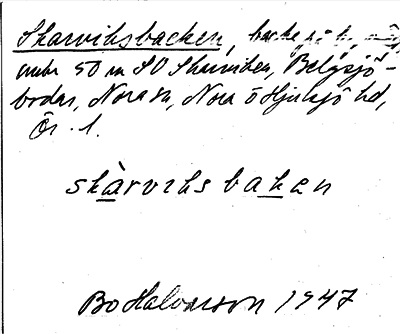 Skarviksbacken, backe
omkr 50 m SO Skarviken, Bälgsjö-
bodar, Nora sn, Nora o Hjulsjö hd,
Ör. l.
skàrviks baken
Bo Halvarson 1947